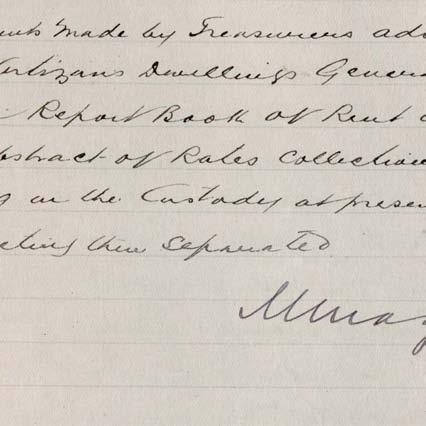 made by Treasurers
Artizans Dwellings Genera
Report Book of Rent
bstract of Rates Collection
in the Custody at presen
cting them separated